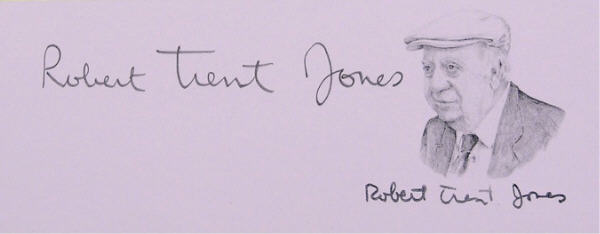 Robert Trent Jones
Robert Trent Jones